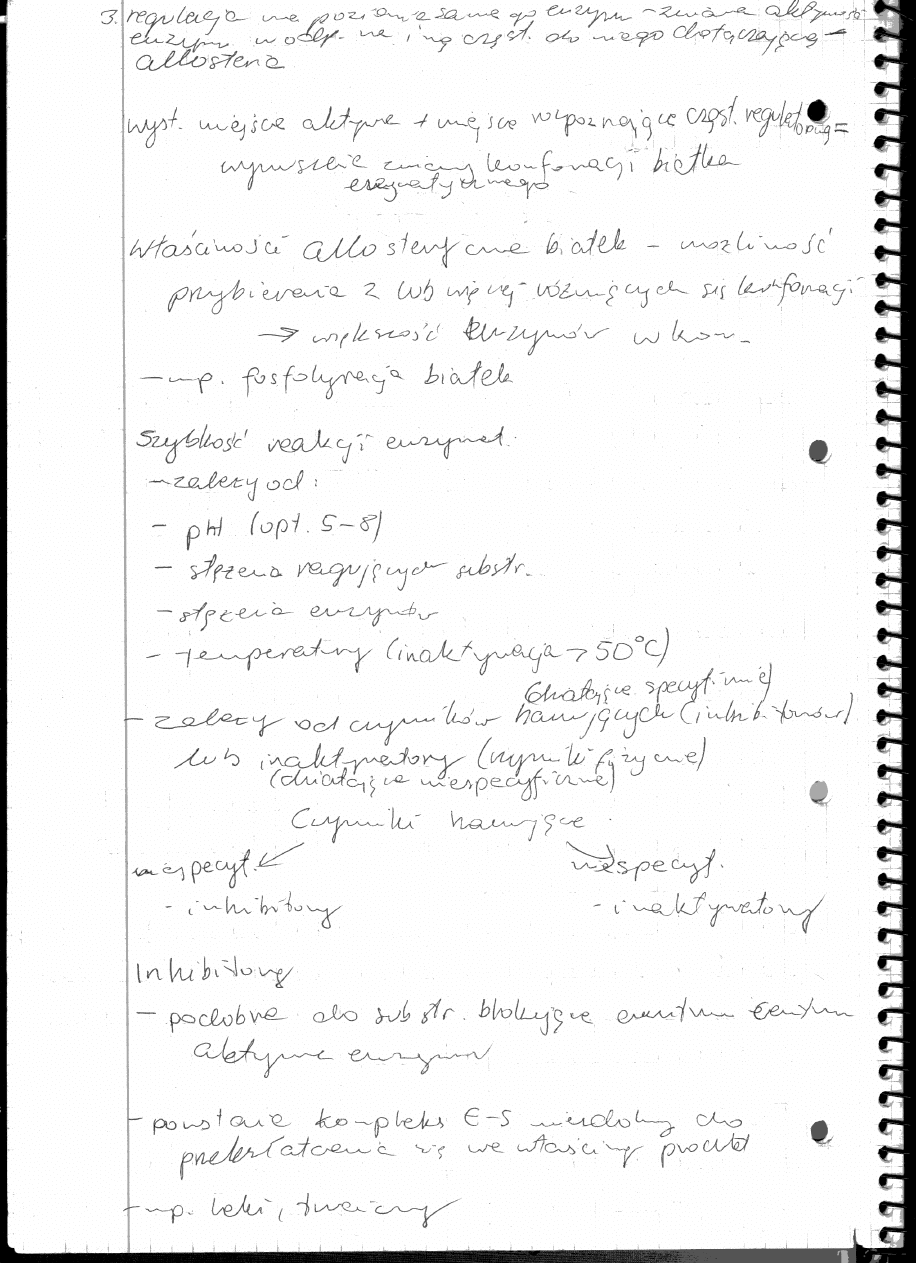 3. regulacja na poziomie samego enzymu - zmiana aktywność
enzymu w odp. na inną cząst. do niego dołączającą -
allosteria
wyst. miejsce aktywne + miejsce rozpoznające cząst. regulatorową =
wymuszenie zmiany konformacji białka
enzymatycznego
Właściwości allosteryczne białek - możliwość
przybierania 2 lub więcej różniących się konformacji
→ większość enzymów w kom.
- np. fosforylacja białek
Szybkość reakcji enzymat.
- zależy od:
- pH (opt. 5-8)
- stężenia reagujących substr.
- stężenia enzymów
- temperatury (inaktywacja > 50°C)
(działające specyficznie)
- zależy od czynników hamujących (inhibitorów)
lub inaktywatory (czynniki fizyczne)
(działające niespecyficznie)
Czynniki hamujące
specyf. niespecyf.
- inhibitory - inaktywatory
Inhibitory
- podobne do substr. blokujące centrum
aktywne enzymów
- powstanie kompleks E-S niezdolny do
przekształcenia się we właściwy produkt
- np. leki, trucizny